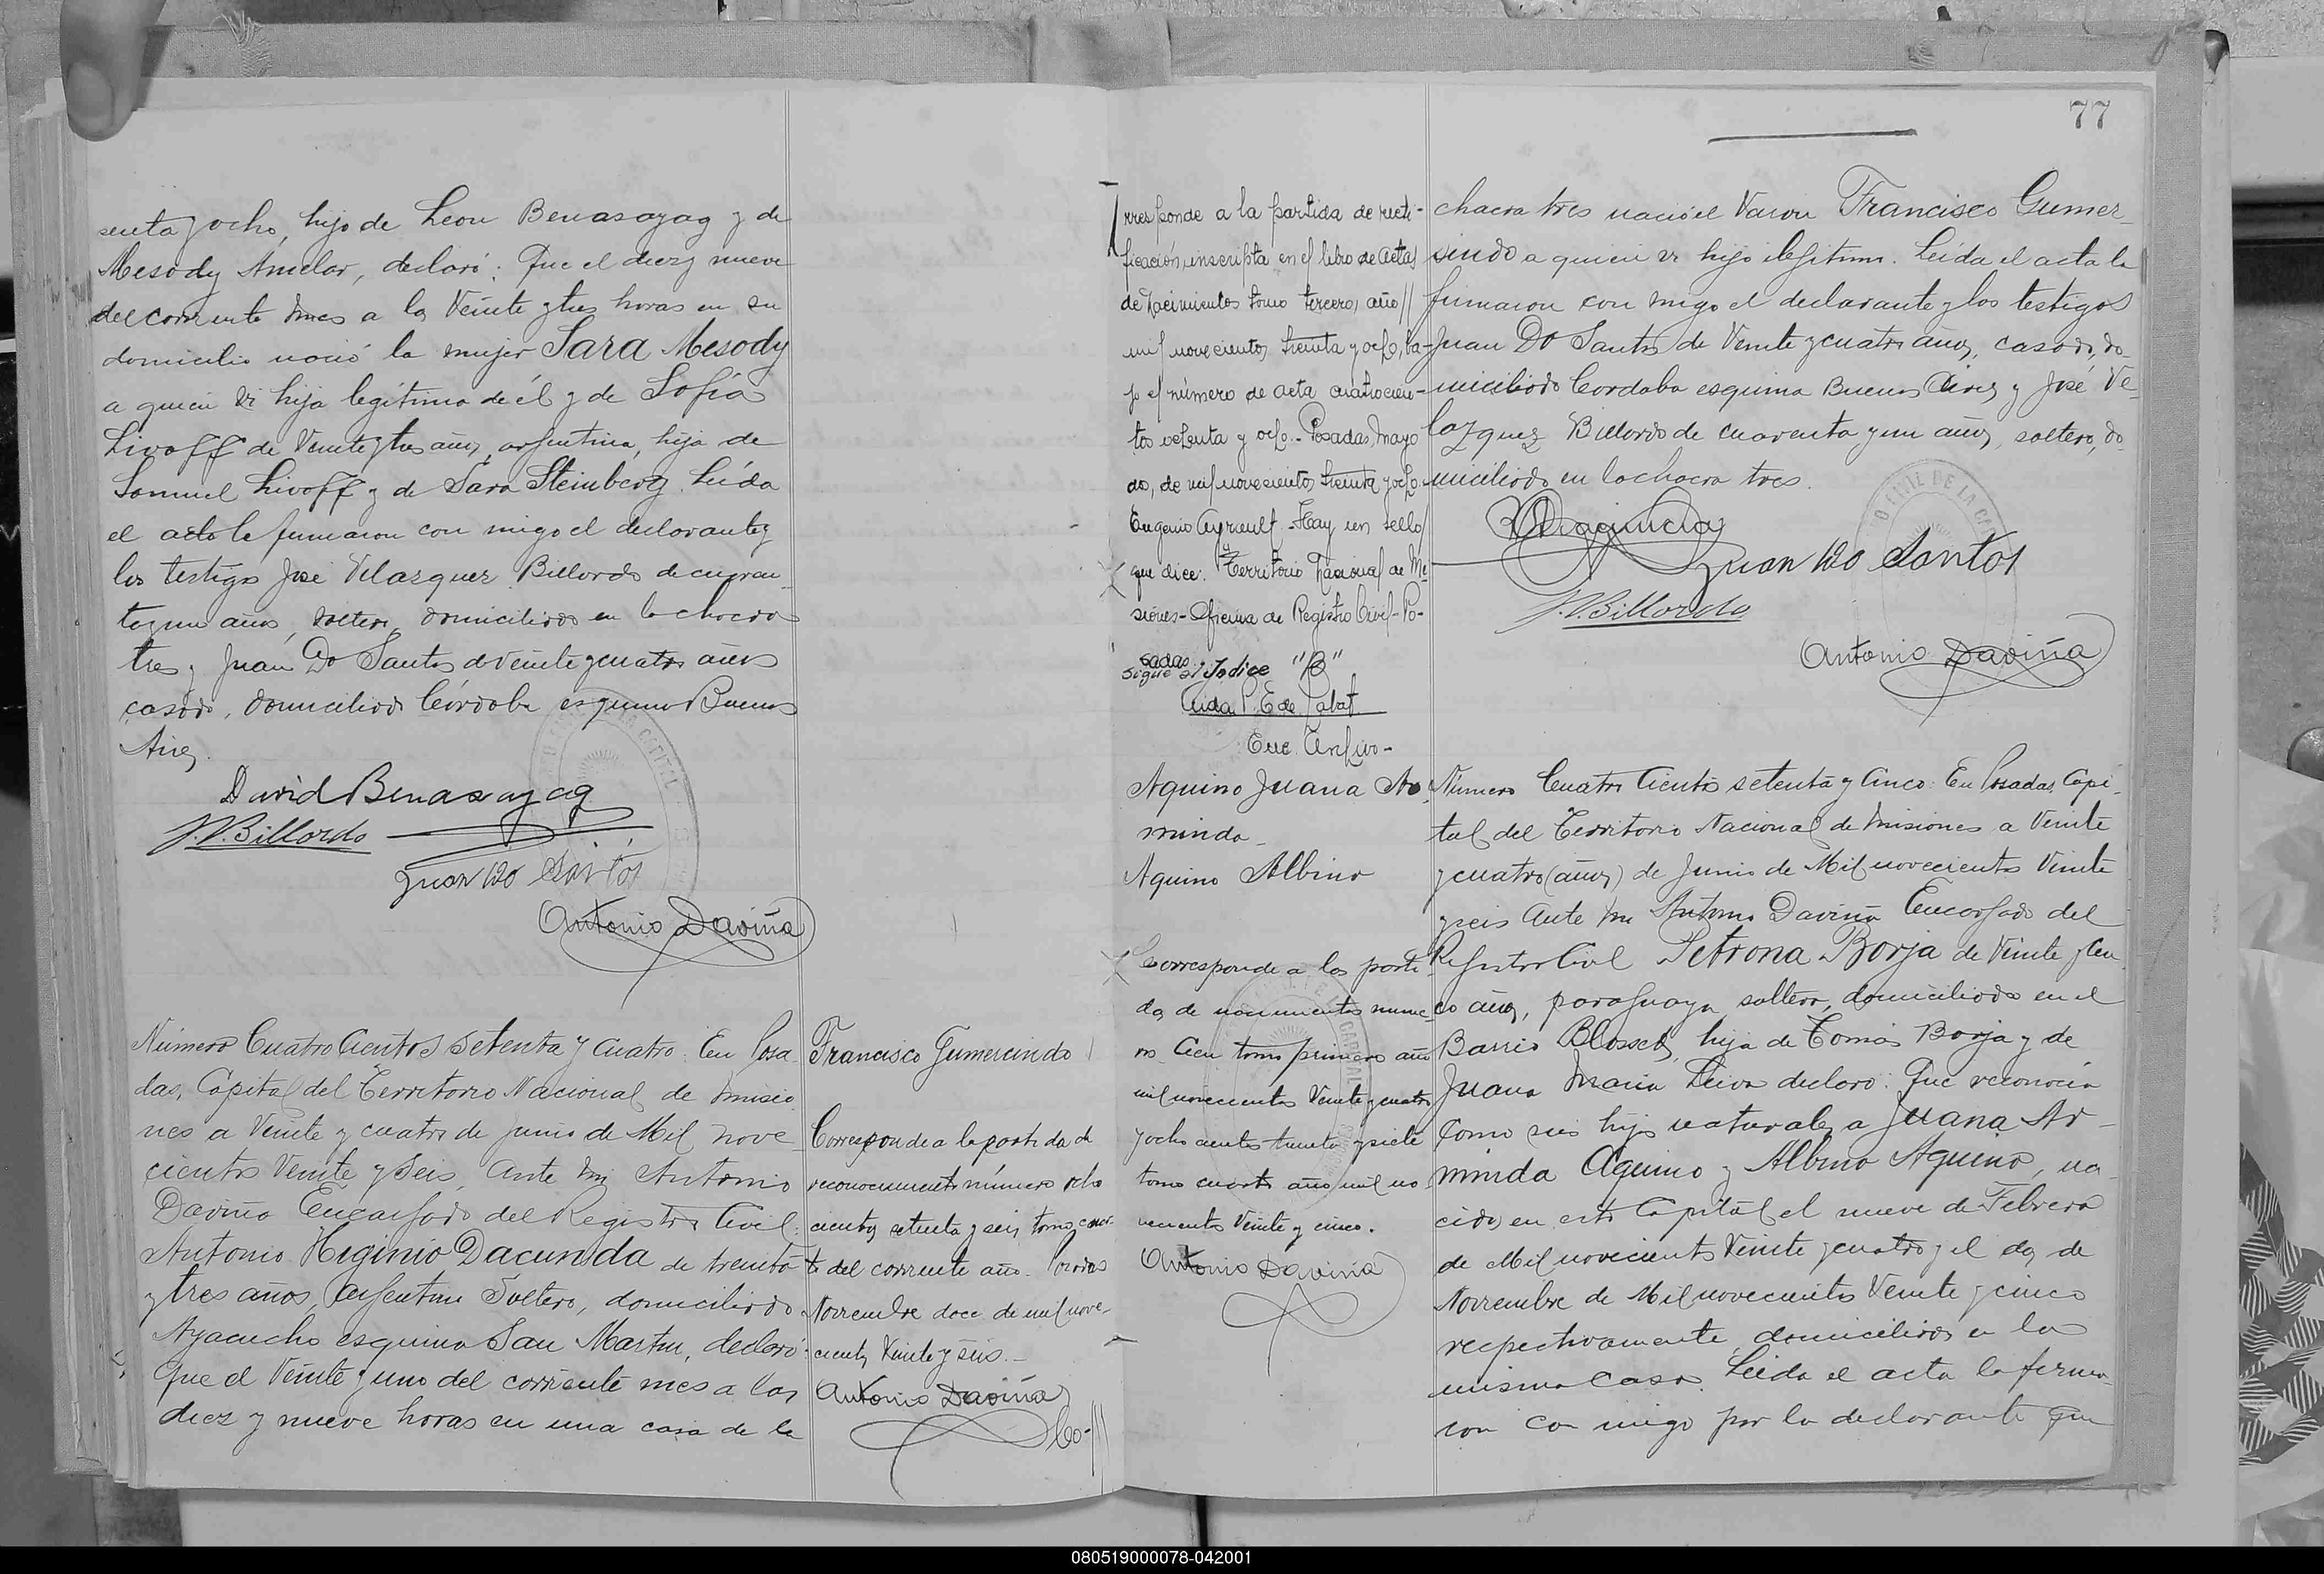 senta y ocho, hijo de Leon Benasayag y de
Mesody Amelar, declaró: Que el diez y nueve
del corriente mes a las Veinte y tres horas en su
domicilio nació la mujer Sara Mesody
a quien vi hija legítima de él y de Sofía
Livoff de Veinte y tres años, argentina, hija de
Samuel Livoff y de Sara Steinberg. Leída
el acta la firmaron con migo el declarante y
los testigos José Velazquez Billordo de cuaren-
ta y un años, soltero, domiciliado en la chacra
tres y Juan Do Santos de veinte y cuatro años
casado, domiciliado Córdoba esquina Buenos
Aires.
David Benasayag
J.V. Billordo
Juan Do Santos
Antonio Daviña
Número Cuatro Cientos setenta y cuatro: En Posa-
das, Capital del Territorio Nacional de Misio-
nes a Veinte y cuatro de junio de Mil nove-
cientos Veinte y Seis, ante mi Antonio
Daviña Encargado del Registro Civil:
Antonio Higinio Dacunda de treinta
y tres años, argentino Soltero, domiciliado
Ayacucho esquina San Martin, declaró:
Que el Veinte y uno del corriente mes a las
diez y nueve horas en una casa de la
Francisco Gumercindo
Corresponde a la partida de
reconocimiento número ocho
cientos setenta y seis, tomo cuar-
to del corriente año. Posadas
Noviembre doce de mil nove-
cientos Veinte y seis.-
Antonio Daviña
Co-///
77
rresponde a la partida de recti-
ficación, inscripta en el libro de actas
de nacimientos tomo tercero, año //
mil novecientos treinta y ocho, ba-
jo el número de acta cuatrocien-
tos ochenta y ocho.- Posadas, mayo
dos, de mil novecientos treinta y ocho
Eugenio Ayrault - Hay un sello
que dice: Territorio Nacional de Mi-
siones - Oficina de Registro Civil - Po-
sadas
sigue al Indice "B"
Aida P. E de Labat
Enc. Archivo-
chacra tres nació el Varon Francisco Gumer-
sindo a quien vi hijo ilegítimo. Leída el acta la
firmaron con migo el declarante y los testigos
Juan Do Santos de Veinte y cuatro años, casado, do-
miciliado Cordoba esquina Buenos Aires y José Ve-
lazquez Billordo de cuarenta y un años, soltero, do-
miciliado en la chacra tres.
Juan Do Santos
J.V. Billordo
Antonio Daviña
Aquino Juana Ar-
minda-
Aquino Albino
Corresponde a las parti-
das de nacimientos nume-
ros Cien tomo primero año
mil novecientos Veinte y cuatro
y ocho cientos treinta y siete
tomo cuarto año mil no-
vecientos Veinte y cinco.
Antonio Daviña
Número Cuatro Cientos setenta y Cinco: En Posadas, Capi-
tal del Territorio Nacional de Misiones a Veinte
y cuatro (años) de Junio de Mil novecientos Veinte
y seis ante mi Antonio Daviña Encargado del
Registro Civil Petrona Borja de Veinte y cin-
co años, paraguaya, soltera, domiciliada en el
Barrio Blosset, hija de Tomás Borja y de
Juana Maria Leiva declaró: Que reconocía
Como sus hijos naturales a Juana Ar-
minda Aquino y Albino Aquino, na-
cidos en esta Capital el nueve de Febrero
de Mil novecientos Veinte y cuatro y el dos de
Noviembre de Mil novecientos Veinte y cinco
respectivamente, domiciliados en la
misma casa. Leída el acta la firma-
ron con migo por la declarante que